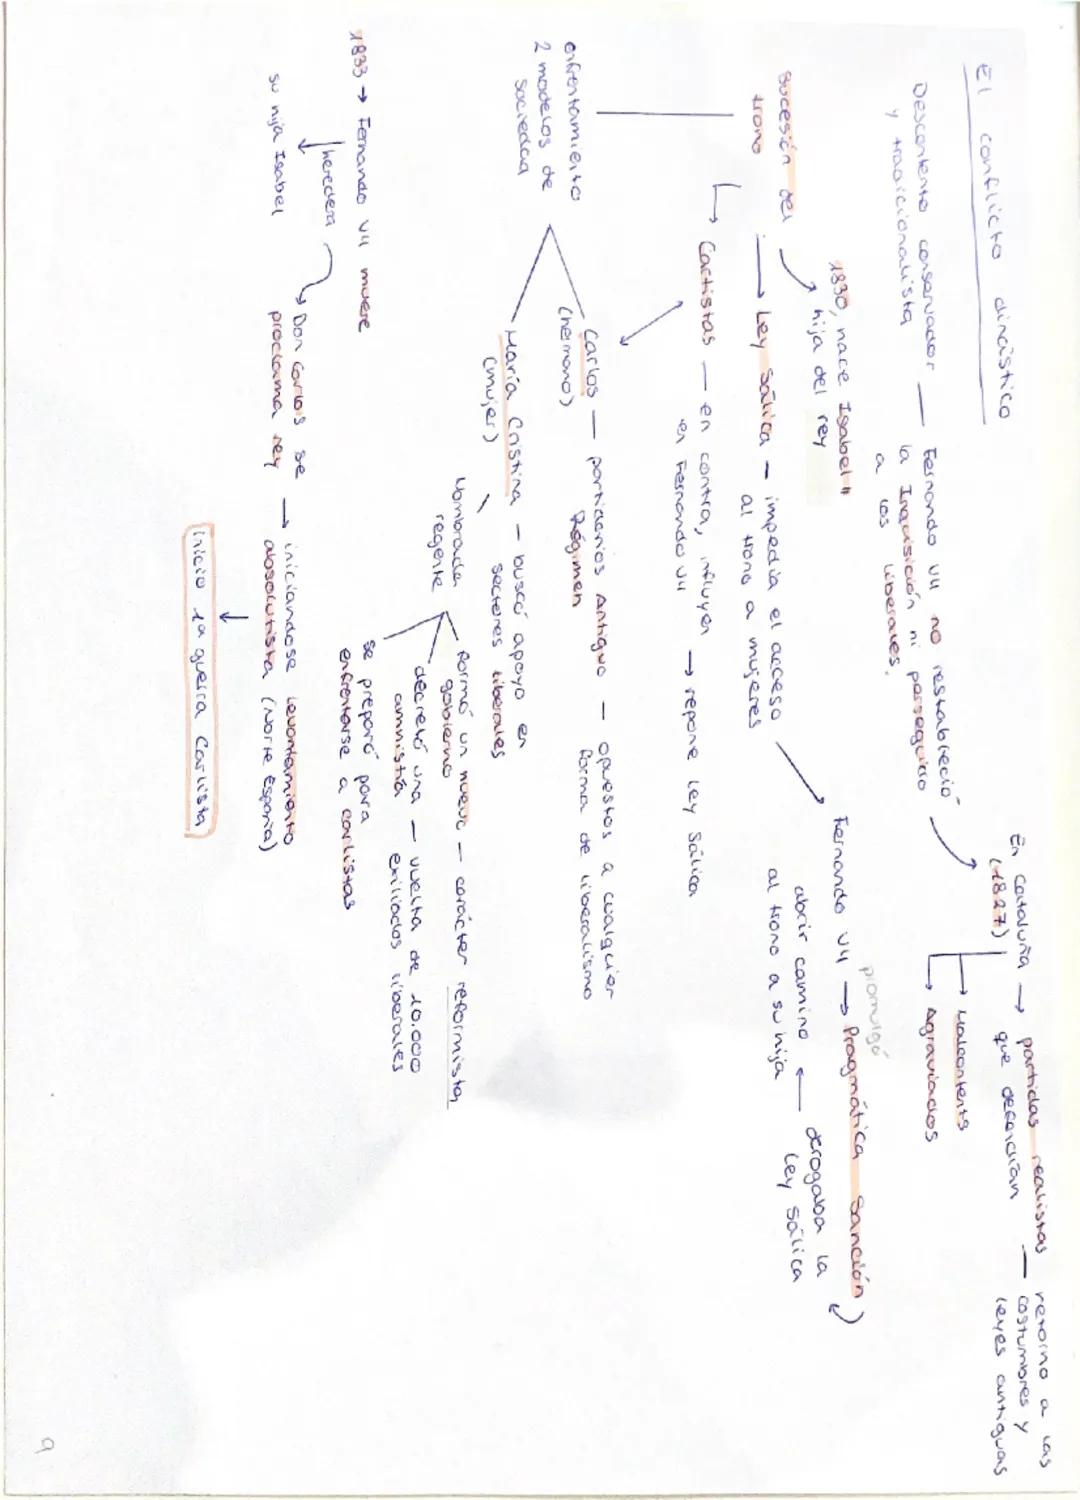 El conflicto dinástico
Descontento conservador — Fernando VII no restableció
y tradicionalista
la Inquisición ni persiguió
a los liberales.
En Cataluña → partidas realistas — retorno a las
(1827)
que defendían
costumbres y
leyes antiguas
Malcontents
Agraviados
1830, nace Isabel II
hija del rey
sucesión del
trono
→ Ley Sálica — impedía el acceso
al trono a mujeres
promulgó
Fernando VII → Pragmática Sanción
derogaba la
Ley Sálica
abrir camino
al trono a su hija
Carlistas — en contra, influyen → repone Ley Sálica
en Fernando VII
enfrentamiento
2 modelos de
sociedad
Carlos — partidarios Antiguo — opuestos a cualquier
(hermano)
Régimen
forma de liberalismo
María Cristina — buscó apoyo en
(mujer)
sectores liberales
Nombrada
regente
formó un nuevo — carácter reformista
gobierno
decretó una — vuelta de 10.000
amnistía
exiliados liberales
se preparó para
enfrentarse a carlistas
1833 → Fernando VII muere
heredera
su hija Isabel
Don Carlos se
proclama rey
→ iniciandose levantamiento
absolutista (Norte España)
Inicio 1a guerra Carlista
9